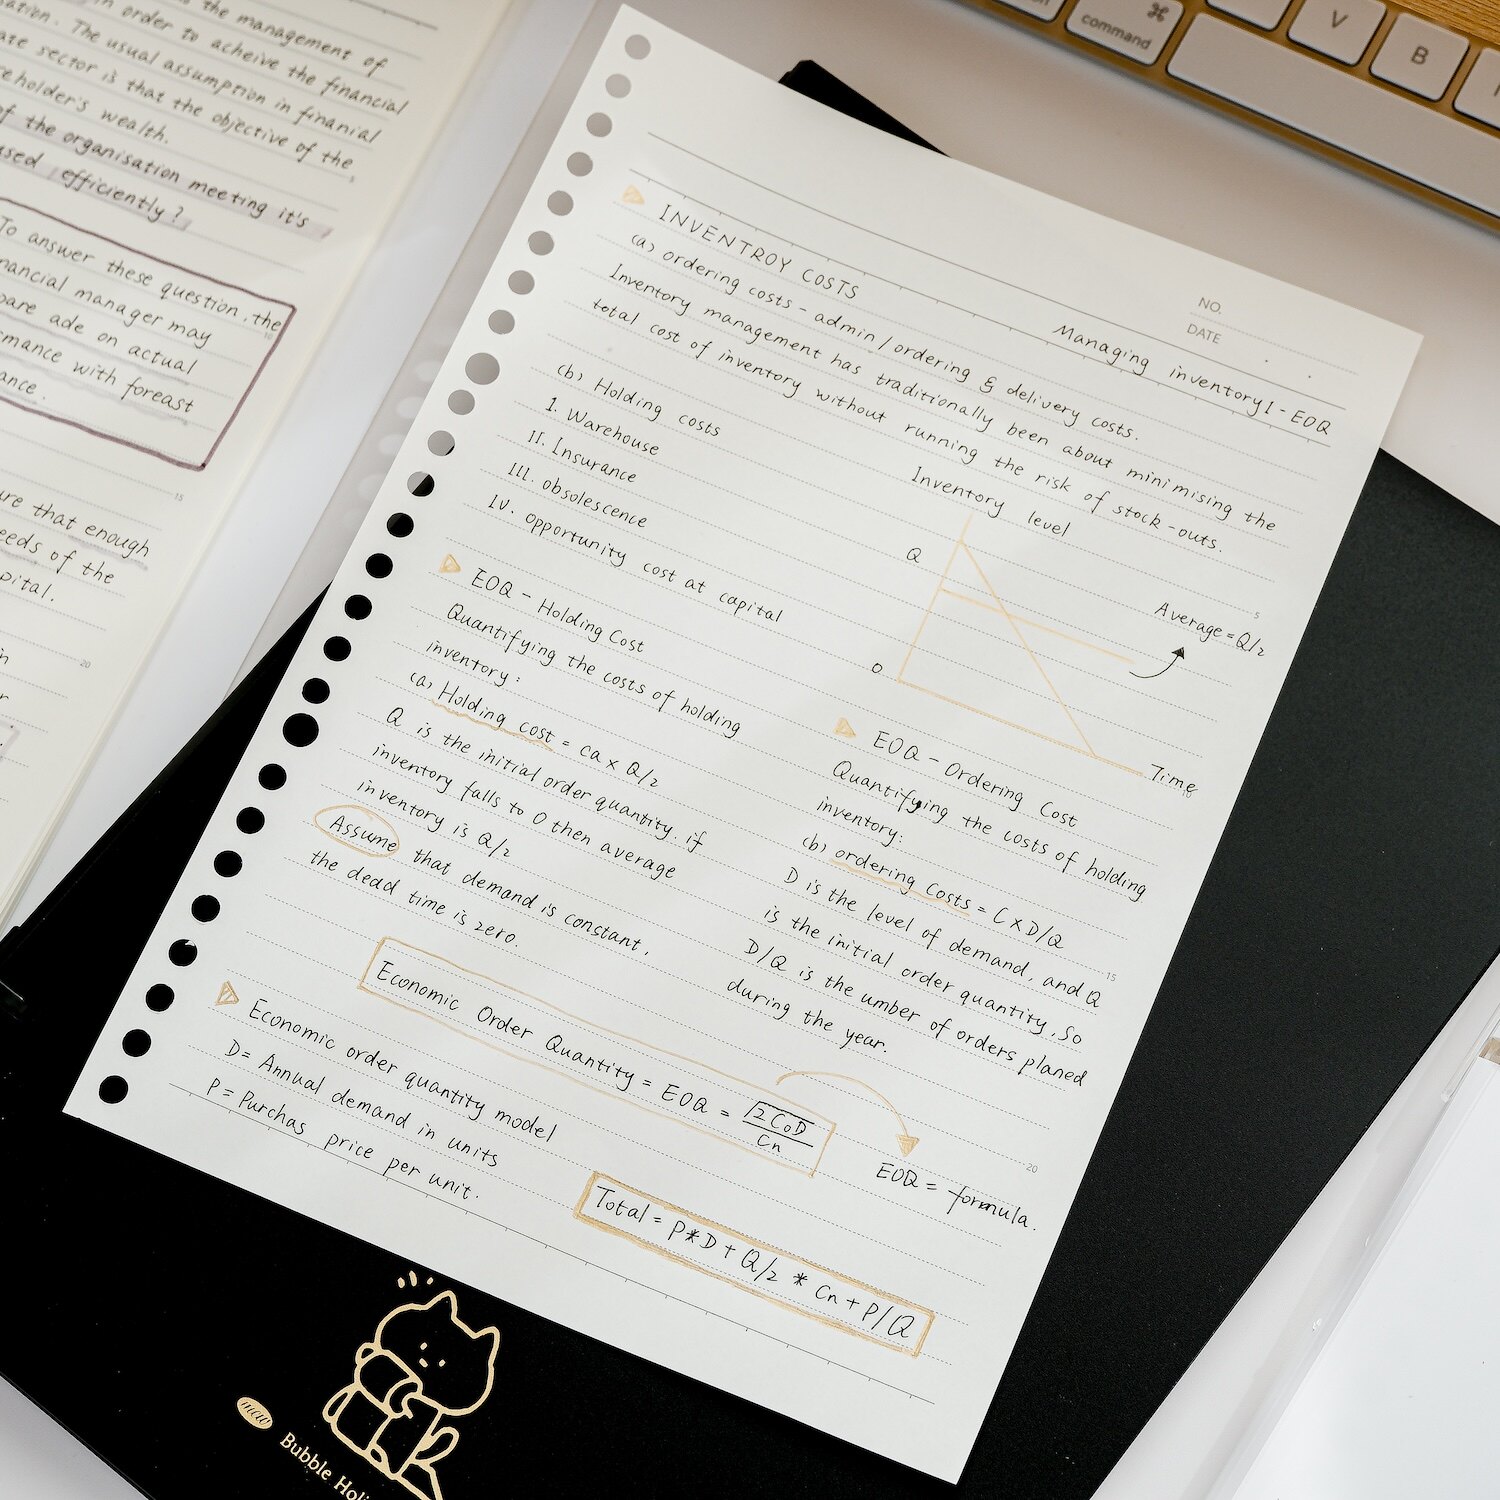 the management of
in order to acheive the financial
sation. The usual assumption in finanial
ate sector is that the objective of the
reholder's wealth.
of the organisation meeting it's
used efficiently?
To answer these question, the
nancial manager may
pare ade on actual
mance with foreast
ance.
15
ure that enough
eeds of the
pital.
20
in
r
command
⌘
V
B
NO.
DATE
Managing inventory 1 - EOQ
INVENTROY COSTS
(a) ordering costs - admin / ordering & delivery costs.
Inventory management has traditionally been about minimising the
total cost of inventory without running the risk of stock-outs.
(b) Holding costs
I. Warehouse
II. Insurance
III. obsolescence
IV. opportunity cost at capital
Inventory level
Q
0
Average = Q/2
Time
5
EOQ - Holding Cost
Quantifying the costs of holding
inventory:
(a) Holding cost = ca x Q/2
Q is the initial order quantity. if
inventory falls to 0 then average
inventory is Q/2
Assume that demand is constant,
the dead time is zero.
EOQ - Ordering Cost
Quantifying the costs of holding
inventory:
(b) ordering costs = C x D/Q
D is the level of demand, and Q
is the initial order quantity. So
D/Q is the umber of orders planed
during the year.
15
Economic Order Quantity = EOQ = √2CoD / Cn
20
EOQ = formula.
Economic order quantity model
D = Annual demand in units
P = Purchas price per unit.
Total = P*D + Q/2 * Cn + P/Q
mcw
Bubble Holi